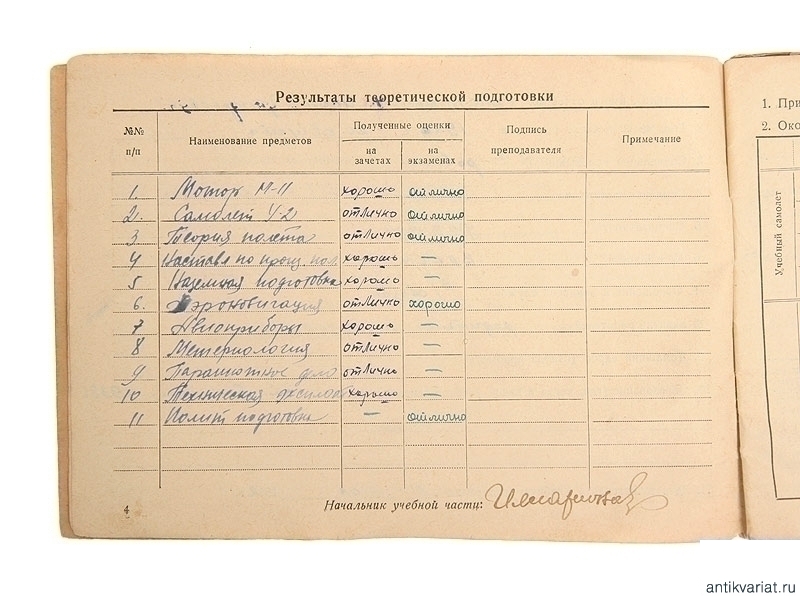 Результаты теоретической подготовки
№№ п/п Наименование предметов Полученные оценки на зачетах на экзаменах Подпись преподавателя Примечание
1. Мотор М-11 хорошо отлично
2. Самолет У-2 отлично отлично
3 Теория полета отлично отлично
4 Наставл по произ. пол. хорошо —
5 Наземная подготовка хорошо —
6. Аэронавигация отлично хорошо
7 Авиоприборы хорошо —
8 Метериология отлично —
9 Парашютное дело отлично —
10 Техническая хорошо —
11 Полит подготовка — отлично
4 Начальник учебной части:
1. При
2. Око
Учебный самолет
antikvariat.ru